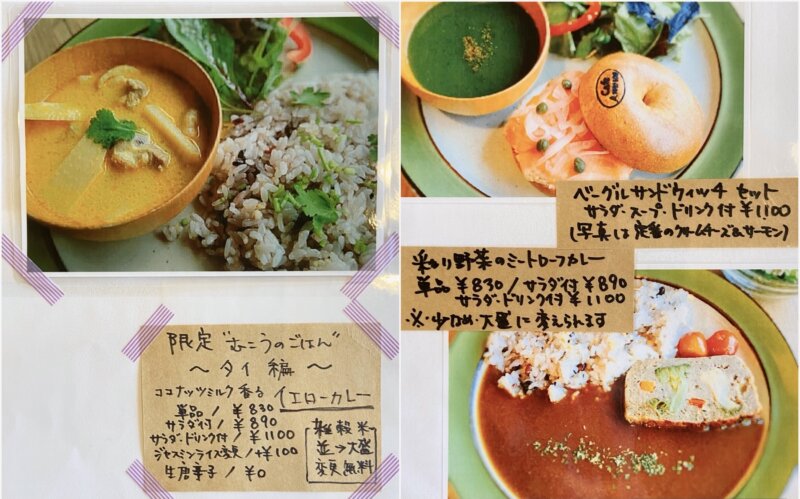 限定"むこうのごはん"
～タイ編～
ココナッツミルク香る イエローカレー
単品 / ￥830
サラダ付 / ￥890
サラダ・ドリンク付 / ￥1100
ジャスミンライス変更 / +￥100
生唐辛子 / ￥0
雑穀米
並→大盛
変更無料
Cafe
ベーグルサンドウィッチ セット
サラダ・スープ・ドリンク付 ￥1100
(写真は定番のクリームチーズ&サーモン)
彩り野菜のミートローフカレー
単品 ￥830 / サラダ付 ￥890
サラダ・ドリンク付 ￥1100
・※・少なめ・大盛に変えられます